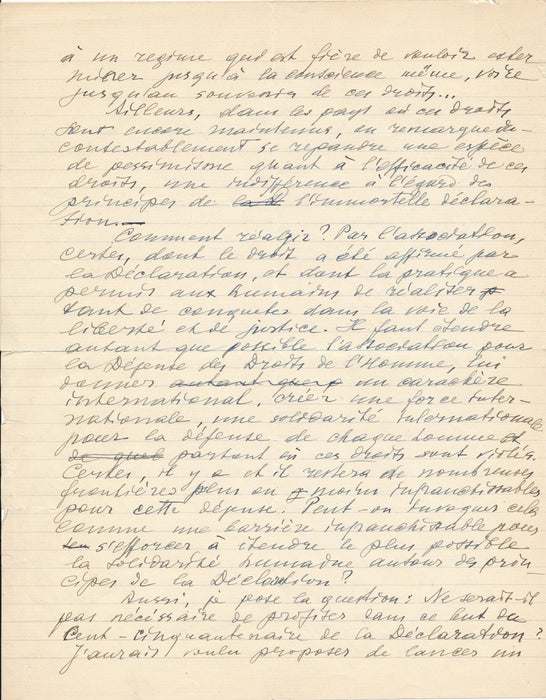 à un regime qui est fière de vouloir exter
miner jusqu'à la conscience même, voire
jusqu'au souvenir de ces droits...
Ailleurs, dans les pays où ces droits
sont encore maintenus, on remarque in-
contestablement se repandre une espèce
de pessimisme quant à l'efficacité de ces
droits, une indifférence à l'égard des
principes de l'immortelle déclara-
tion.
Comment réalgir? Par l'association,
certes, dont le droit a été affirmé par
la Déclaration, et dont la pratique a
permis aux humains de réaliser
tant de conquetes dans la voie de la
liberté et de justice. Il faut étendre
autant que possible l'association pour
la Défense des Droits de l'Homme, lui
donner autant que p un caractère
international, créer une force inter-
nationale, une solidarité internationale
pour la défense de chaque homme et
de quel partout où ces droits sont violés.
Certes, il y a et il restera de nombreuses
frontières plus ou moins infranchissables
pour cette défense. Peut-on invoquer cela
comme une barrière infranchissable pour
s'efforcer à étendre le plus possible
la solidarité humaine autour des prin
cipes de la Déclaration?
Aussi, je pose la question: Ne serait-il
pas nécessaire de profiter dans ce but du
Cent-cinquantenaire de la Déclaration?
J'aurais voulu proposer de lancer un